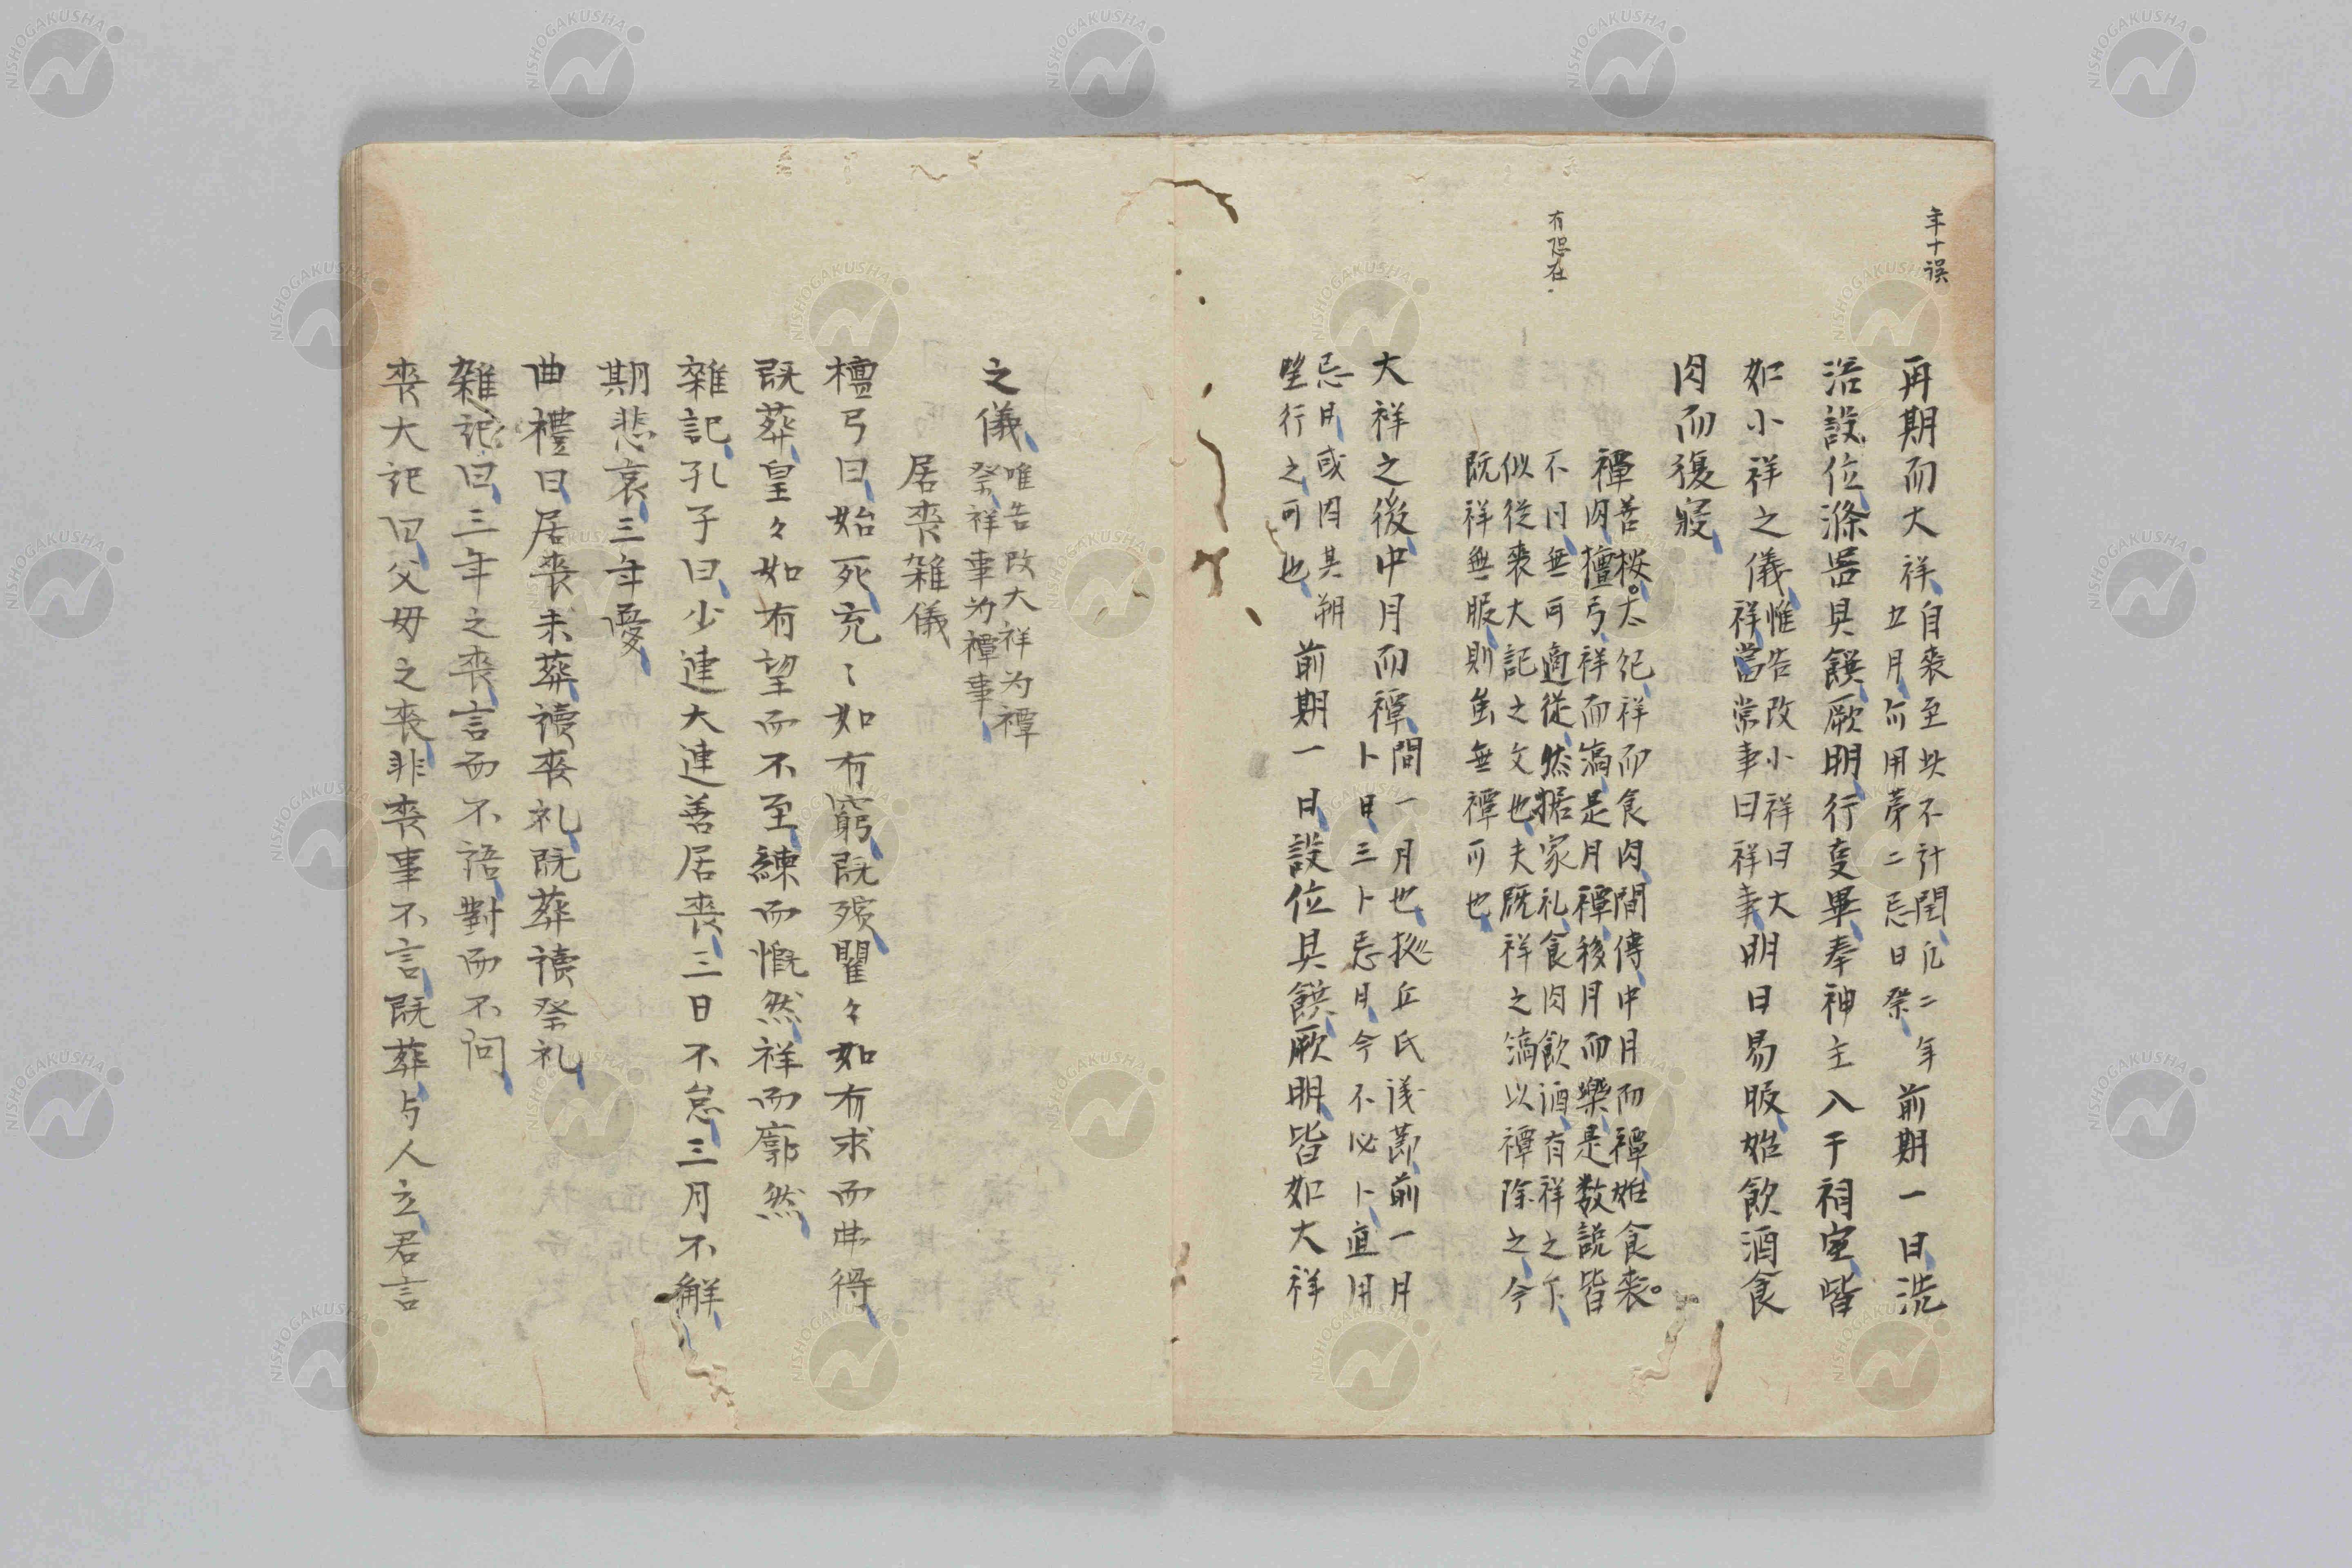 年十誤
再期而大祥自喪至此不計閏凡二年
五月而用第二忌日祭前期一日洗
浴設位滌器具饌厥明行変畢奉神主入于祠室皆
如小祥之儀惟告改小祥曰大
祥當常事曰祥事明日易服始飲酒食
肉而復寢
有恐在
禫善桉太紀祥而食肉間傳中月而禫始食
肉檀弓祥而縞是月禫移月而樂是数說皆
不同無可適從然据家礼食肉飲酒有祥之下
似從喪大記之文也夫既祥之縞以禫除之今
既祥無服則虽無禫可也
大祥之後中月而禫間一月也挍丘氏議節前一月
卜日三卜忌月今不必卜直用
忌月或因其朔
望行之可也前期一日設位具饌厥明皆如大祥
之儀唯告改大祥为禫
祭祥事为禫事
居喪雜儀
檀弓曰始死充〻如有窮既殯瞿々如有求而弗得
既葬皇々如有望而不至練而慨然祥而廓然
雜記孔子曰少連大連善居喪三日不怠三月不觧
期悲哀三年憂
曲禮曰居喪未葬讀喪礼既葬讀祭礼
雜記曰三年之喪言而不語對而不問
喪大記曰父母之喪非喪事不言既葬与人立君言
NISHOGAKUSHA